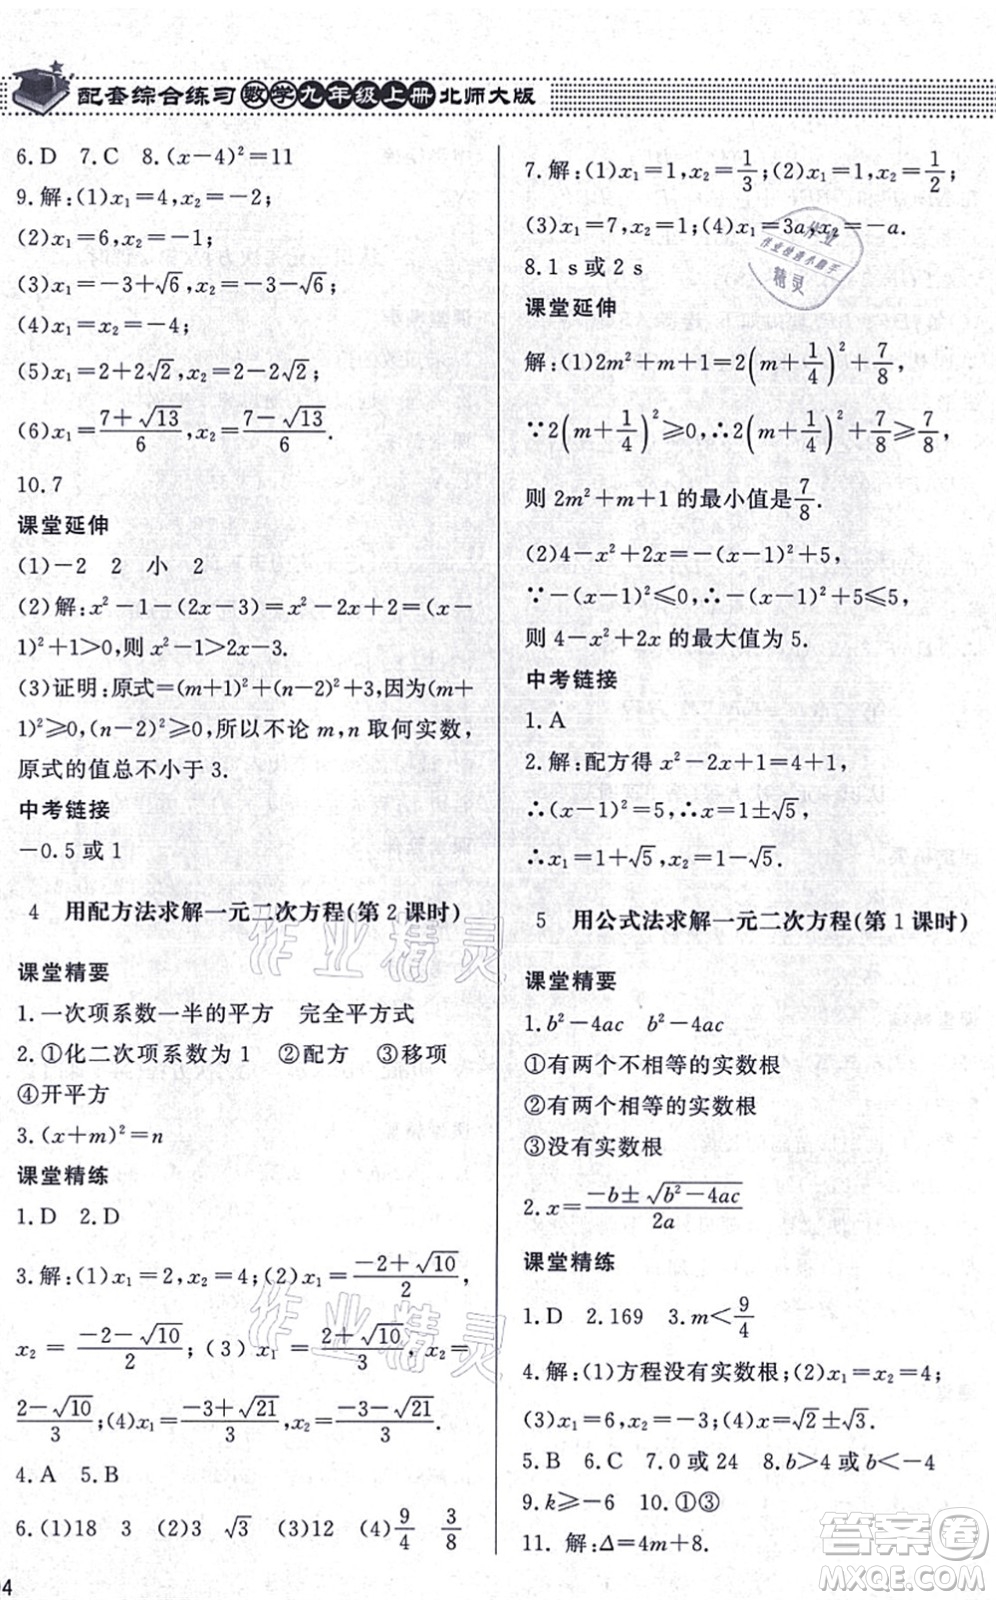 配套综合练习 数学九年级上册 北师大版
6.D 7.C 8.(x－4)²＝11
9.解:(1)x₁＝4,x₂＝－2;
(2)x₁＝6,x₂＝－1;
(3)x₁＝－3＋√6,x₂＝－3－√6;
(4)x₁＝x₂＝－4;
(5)x₁＝2＋2√2,x₂＝2－2√2;
(6)x₁＝(7＋√13)/6,x₂＝(7－√13)/6.
10.7
课堂延伸
(1)－2 2 小 2
(2)解:x²－1－(2x－3)＝x²－2x＋2＝(x－
1)²＋1＞0,则 x²－1＞2x－3.
(3)证明:原式＝(m＋1)²＋(n－2)²＋3,因为(m＋
1)²≥0,(n－2)²≥0,所以不论 m,n 取何实数,
原式的值总不小于 3.
中考链接
－0.5 或 1
4 用配方法求解一元二次方程(第 2 课时)
课堂精要
1.一次项系数一半的平方 完全平方式
2.①化二次项系数为 1 ②配方 ③移项
④开平方
3.(x＋m)²＝n
课堂精练
1.D 2.D
3.解:(1)x₁＝2,x₂＝4;(2)x₁＝(－2＋√10)/2,
x₂＝(－2－√10)/2;(3)x₁＝(2＋√10)/3,x₂＝
(2－√10)/3;(4)x₁＝(－3＋√21)/3,x₂＝(－3－√21)/3.
4.A 5.B
6.(1)18 3 (2)3 √3 (3)12 (4)9/4 3/8
04
7.解:(1)x₁＝1,x₂＝1/3;(2)x₁＝1,x₂＝1/2;
(3)x₁＝7,x₂＝1;(4)x₁＝3a,x₂＝－a.
8.1 s 或 2 s
课堂延伸
解:(1)2m²＋m＋1＝2(m＋1/4)²＋7/8,
∵2(m＋1/4)²≥0,∴2(m＋1/4)²＋7/8≥7/8,
则 2m²＋m＋1 的最小值是7/8.
(2)4－x²＋2x＝－(x－1)²＋5,
∵－(x－1)²≤0,∴－(x－1)²＋5≤5,
则 4－x²＋2x 的最大值为 5.
中考链接
1.A
2.解:配方得 x²－2x＋1＝4＋1,
∴(x－1)²＝5,∴x＝1±√5,
∴x₁＝1＋√5,x₂＝1－√5.
5 用公式法求解一元二次方程(第 1 课时)
课堂精要
1.b²－4ac b²－4ac
①有两个不相等的实数根
②有两个相等的实数根
③没有实数根
2.x＝(－b±√(b²－4ac))/2a
课堂精练
1.D 2.169 3.m＜9/4
4.解:(1)方程没有实数根;(2)x₁＝x₂＝4;
(3)x₁＝6,x₂＝－1;(4)x＝√2±√3.
5.B 6.C 7.0 或 24 8.b＞4 或 b＜－4
9.k≥－6 10.①③
11.解:Δ＝4m＋8.
作业
作业检查小助手
精灵
作业精灵
作业精灵
答案卷
MXQE.COM